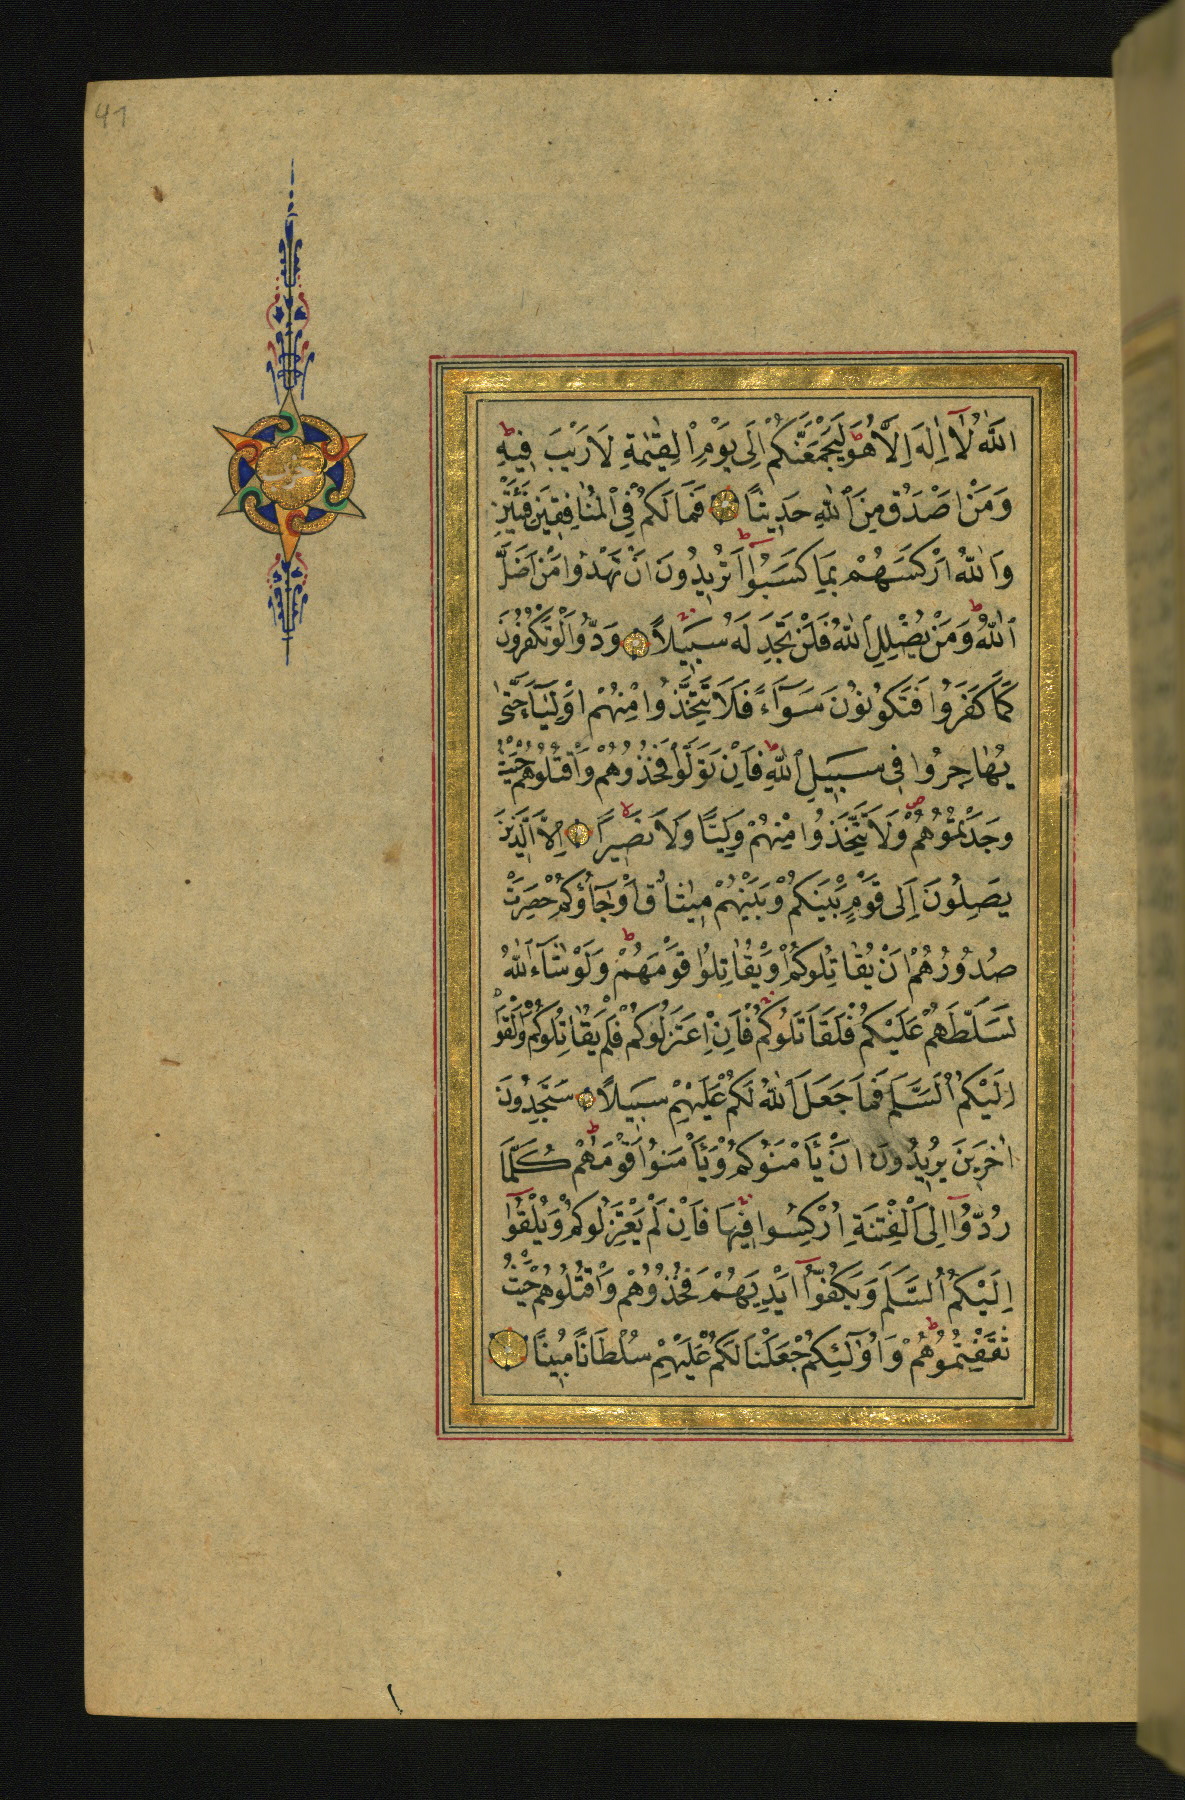 41
حزب
اللّٰهُ لَٓا اِلٰهَ اِلَّا هُوَ لَيَجْمَعَنَّكُمْ اِلٰى يَوْمِ الْقِيٰمَةِ لَا رَيْبَ فِيهِ ط
وَمَنْ اَصْدَقُ مِنَ اللّٰهِ حَدِيثًا فَمَا لَكُمْ فِي الْمُنَافِقِينَ فِئَتَيْنِ
وَاللّٰهُ اَرْكَسَهُمْ بِمَا كَسَبُوا ط اَتُرِيدُونَ اَنْ تَهْدُوا مَنْ اَضَلَّ
اللّٰهُ ط وَمَنْ يُضْلِلِ اللّٰهُ فَلَنْ تَجِدَ لَهُ سَبِيلًا وَدُّوا لَوْ تَكْفُرُونَ
كَمَا كَفَرُوا فَتَكُونُونَ سَوَٓاءً فَلَا تَتَّخِذُوا مِنْهُمْ اَوْلِيَٓاءَ حَتّٰى
يُهَاجِرُوا فِي سَبِيلِ اللّٰهِ ط فَاِنْ تَوَلَّوْا فَخُذُوهُمْ وَاقْتُلُوهُمْ حَيْثُ
وَجَدْتُمُوهُمْ ص وَلَا تَتَّخِذُوا مِنْهُمْ وَلِيًّا وَلَا نَصِيرًا لا اِلَّا الَّذِينَ
يَصِلُونَ اِلٰى قَوْمٍ بَيْنَكُمْ وَبَيْنَهُمْ مِيثَاقٌ اَوْ جَٓاؤُكُمْ حَصِرَتْ
صُدُورُهُمْ اَنْ يُقَاتِلُوكُمْ اَوْ يُقَاتِلُوا قَوْمَهُمْ ط وَلَوْ شَٓاءَ اللّٰهُ
لَسَلَّطَهُمْ عَلَيْكُمْ فَلَقَاتَلُوكُمْ فَاِنِ اعْتَزَلُوكُمْ فَلَمْ يُقَاتِلُوكُمْ وَاَلْقَوْا
اِلَيْكُمُ السَّلَمَ فَمَا جَعَلَ اللّٰهُ لَكُمْ عَلَيْهِمْ سَبِيلًا سَتَجِدُونَ
اٰخَرِينَ يُرِيدُونَ اَنْ يَأْمَنُوكُمْ وَيَأْمَنُوا قَوْمَهُمْ ط كُلَّمَا
رُدُّٓوا اِلَى الْفِتْنَةِ اُرْكِسُوا فِيهَا فَاِنْ لَمْ يَعْتَزِلُوكُمْ وَيُلْقُٓوا
اِلَيْكُمُ السَّلَمَ وَيَكُفُّٓوا اَيْدِيَهُمْ فَخُذُوهُمْ وَاقْتُلُوهُمْ حَيْثُ
ثَقِفْتُمُوهُمْ ط وَاُولٰٓئِكُمْ جَعَلْنَا لَكُمْ عَلَيْهِمْ سُلْطَانًا مُبِينًا